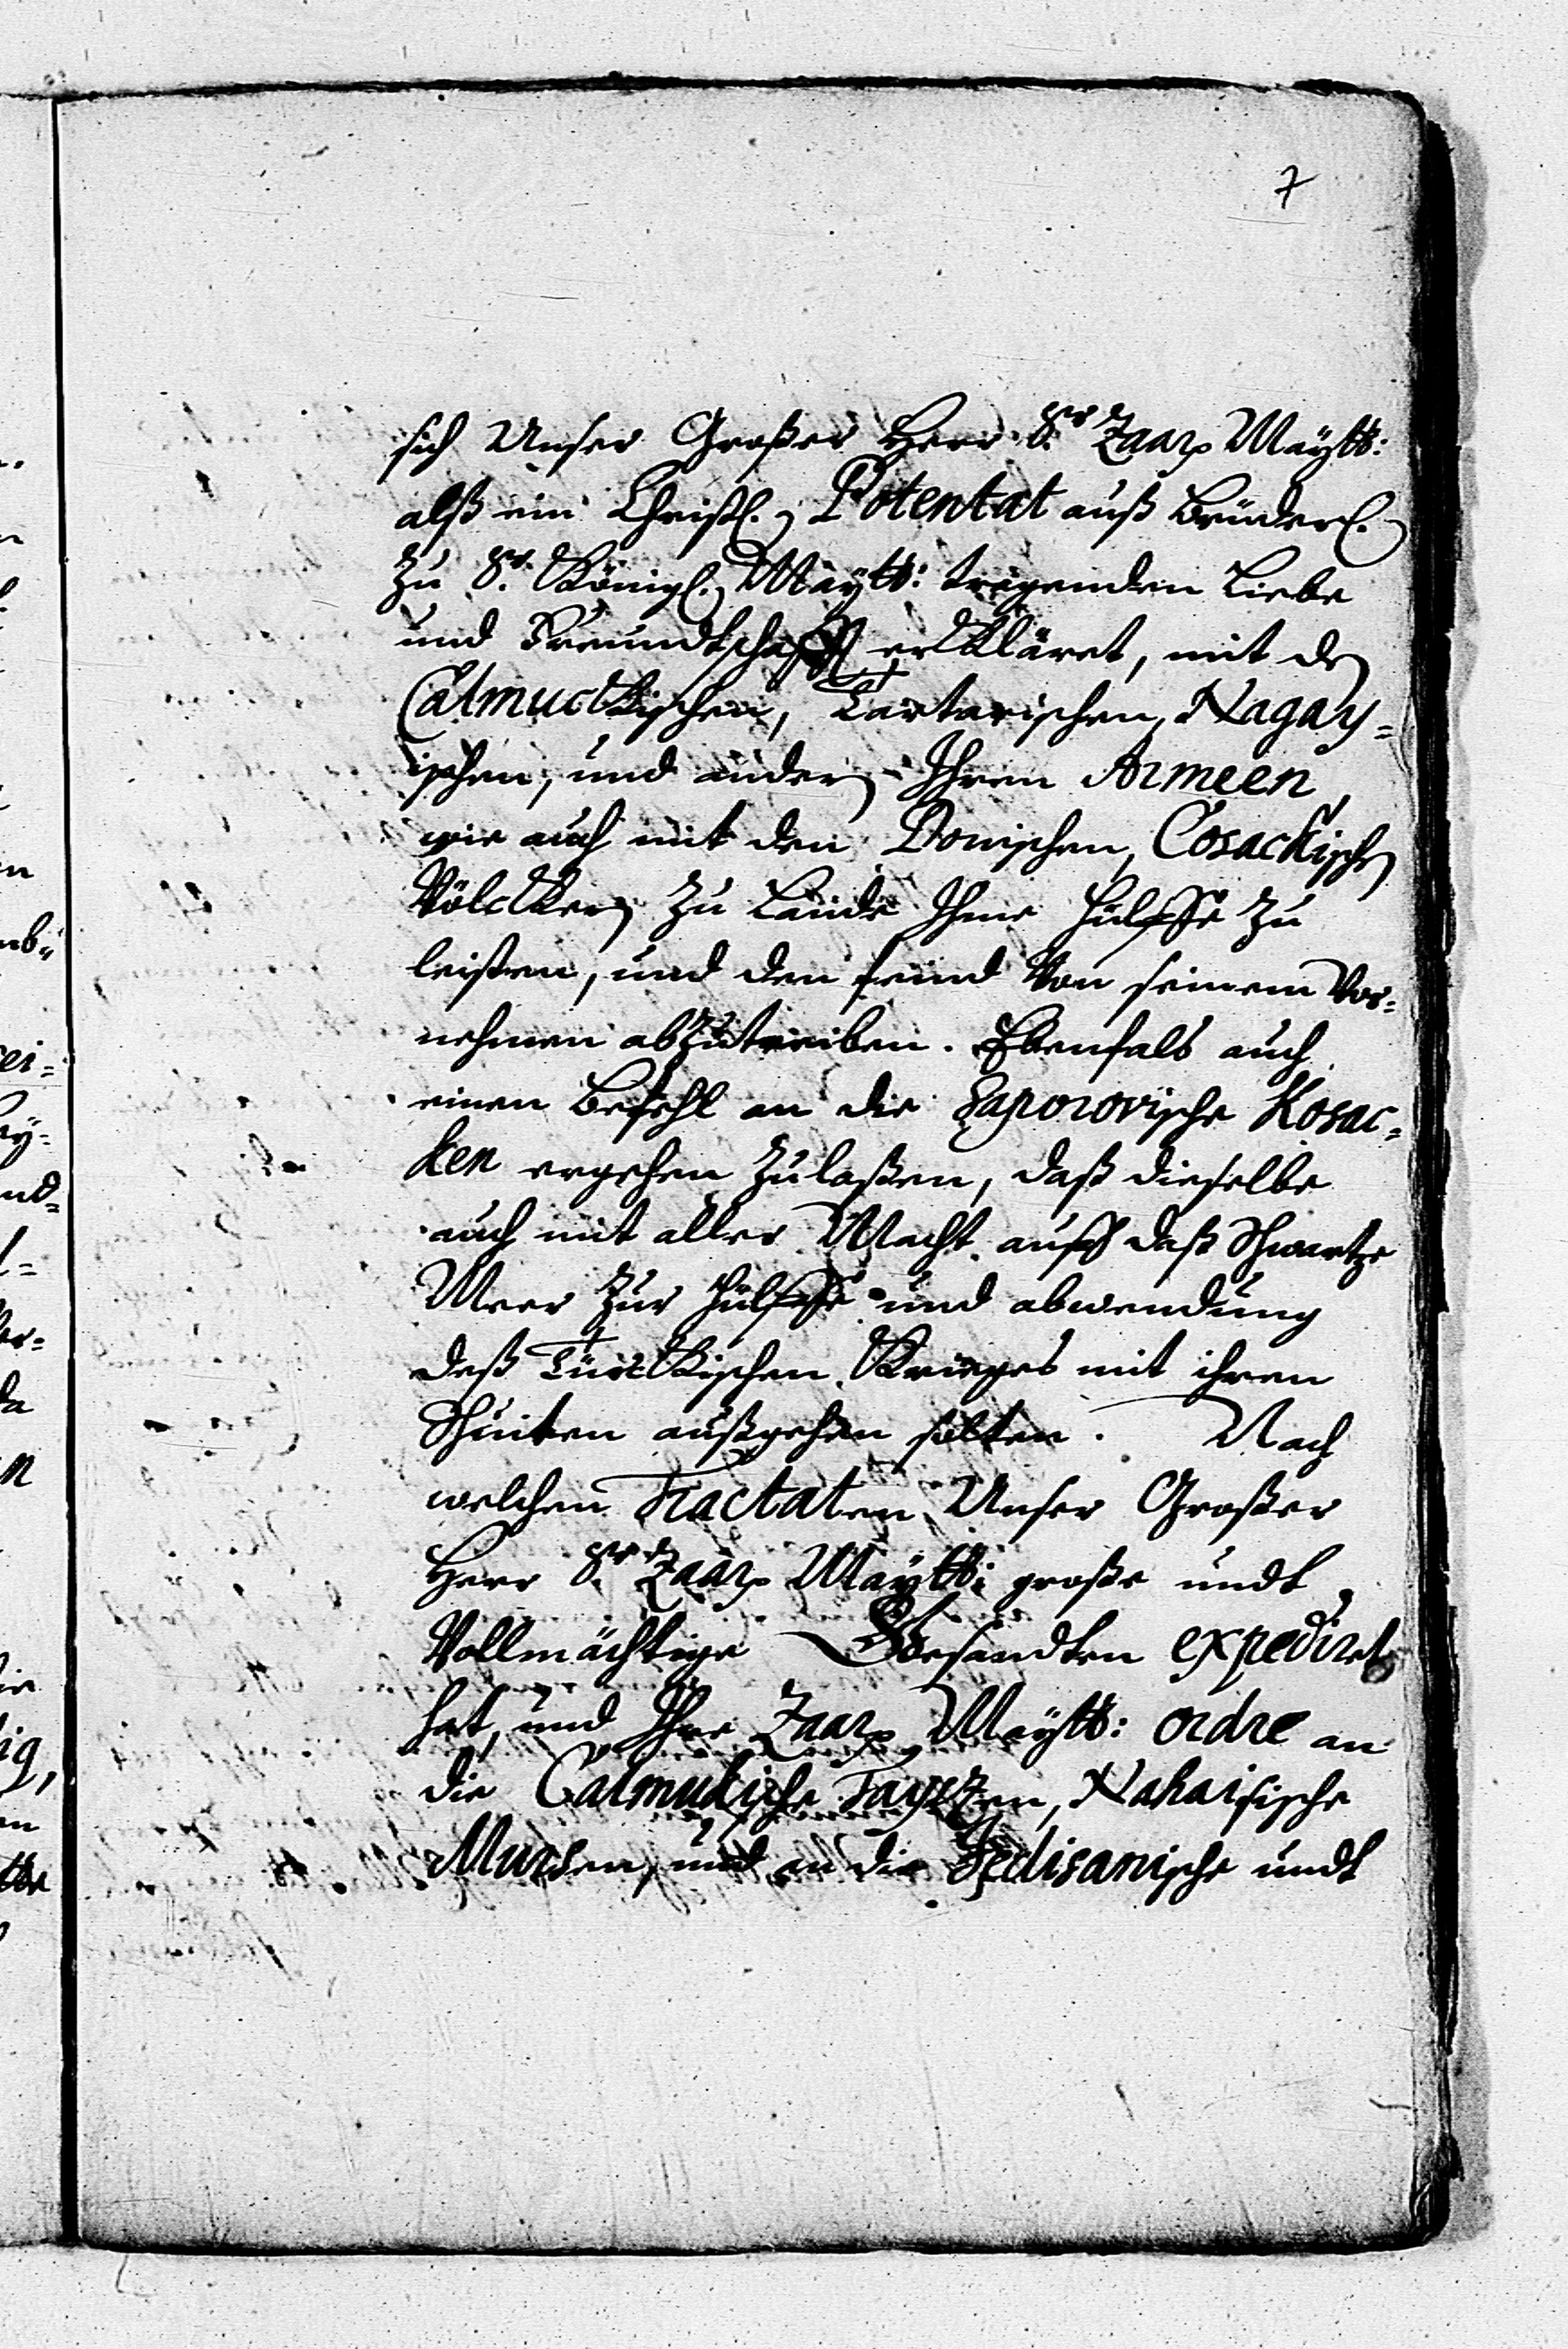 7
sich Unser Großer Herr Sr Zaar. Maÿtt:
alß ein Christl. Potentat auß Brüderl.
zu Sr. Königl. Maÿtt: tragenden Liebe
und Freundtschafft erkläret, mit den
Calmuckischen, Tartarischen, Nagay=
ischen, und andern Ihren Armeen
wie auch mit den Donischen, Cosackischen
Völckern zu Lande Ihme hülffe zu
leisten, und den feind Von seinem Vor=
nehmen abzutreiben. Ebenfals auch
einen Befehl an die Saporovische Kosac=
ken ergehen zulaßen, daß dieselbe
auch mit aller Macht auff daß Schwartze
Meer zur hülffe und abwendung
deß Türckischen Krieges mit ihren
Schuiten außgehen solten. Nach
welchen Tractaten Unser Großer
Herr Sr Zaar. Maÿtt: große undt
Vollmächtige Gesandten expediret
hat, und Ihre Zaar. Maÿtt: ordre an
die Calmukische Tayszen, Nahaisische
Mursen, und an die Jedisanische undt